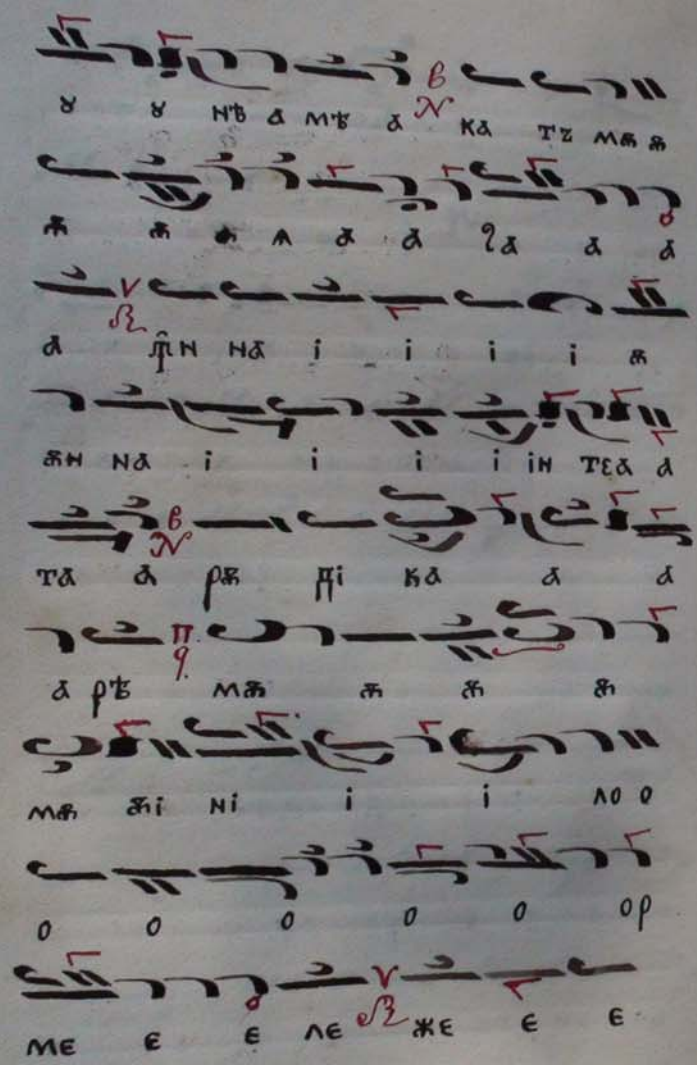 ꙋ ꙋ нѣ а мѣ а в ка тъ мѫ ѫ
ѫ ѫ ѫ ѧ а а а а
а ꙟн на і і і і ѫ
ѫн на і і і і ін теа а
та а в рѫ ді ка а а
а рѣ п q мѫ ѫ ѫ ѫ
мѫ ѫі ні і і ло о
о о о о о ор
ме е е ле же е е